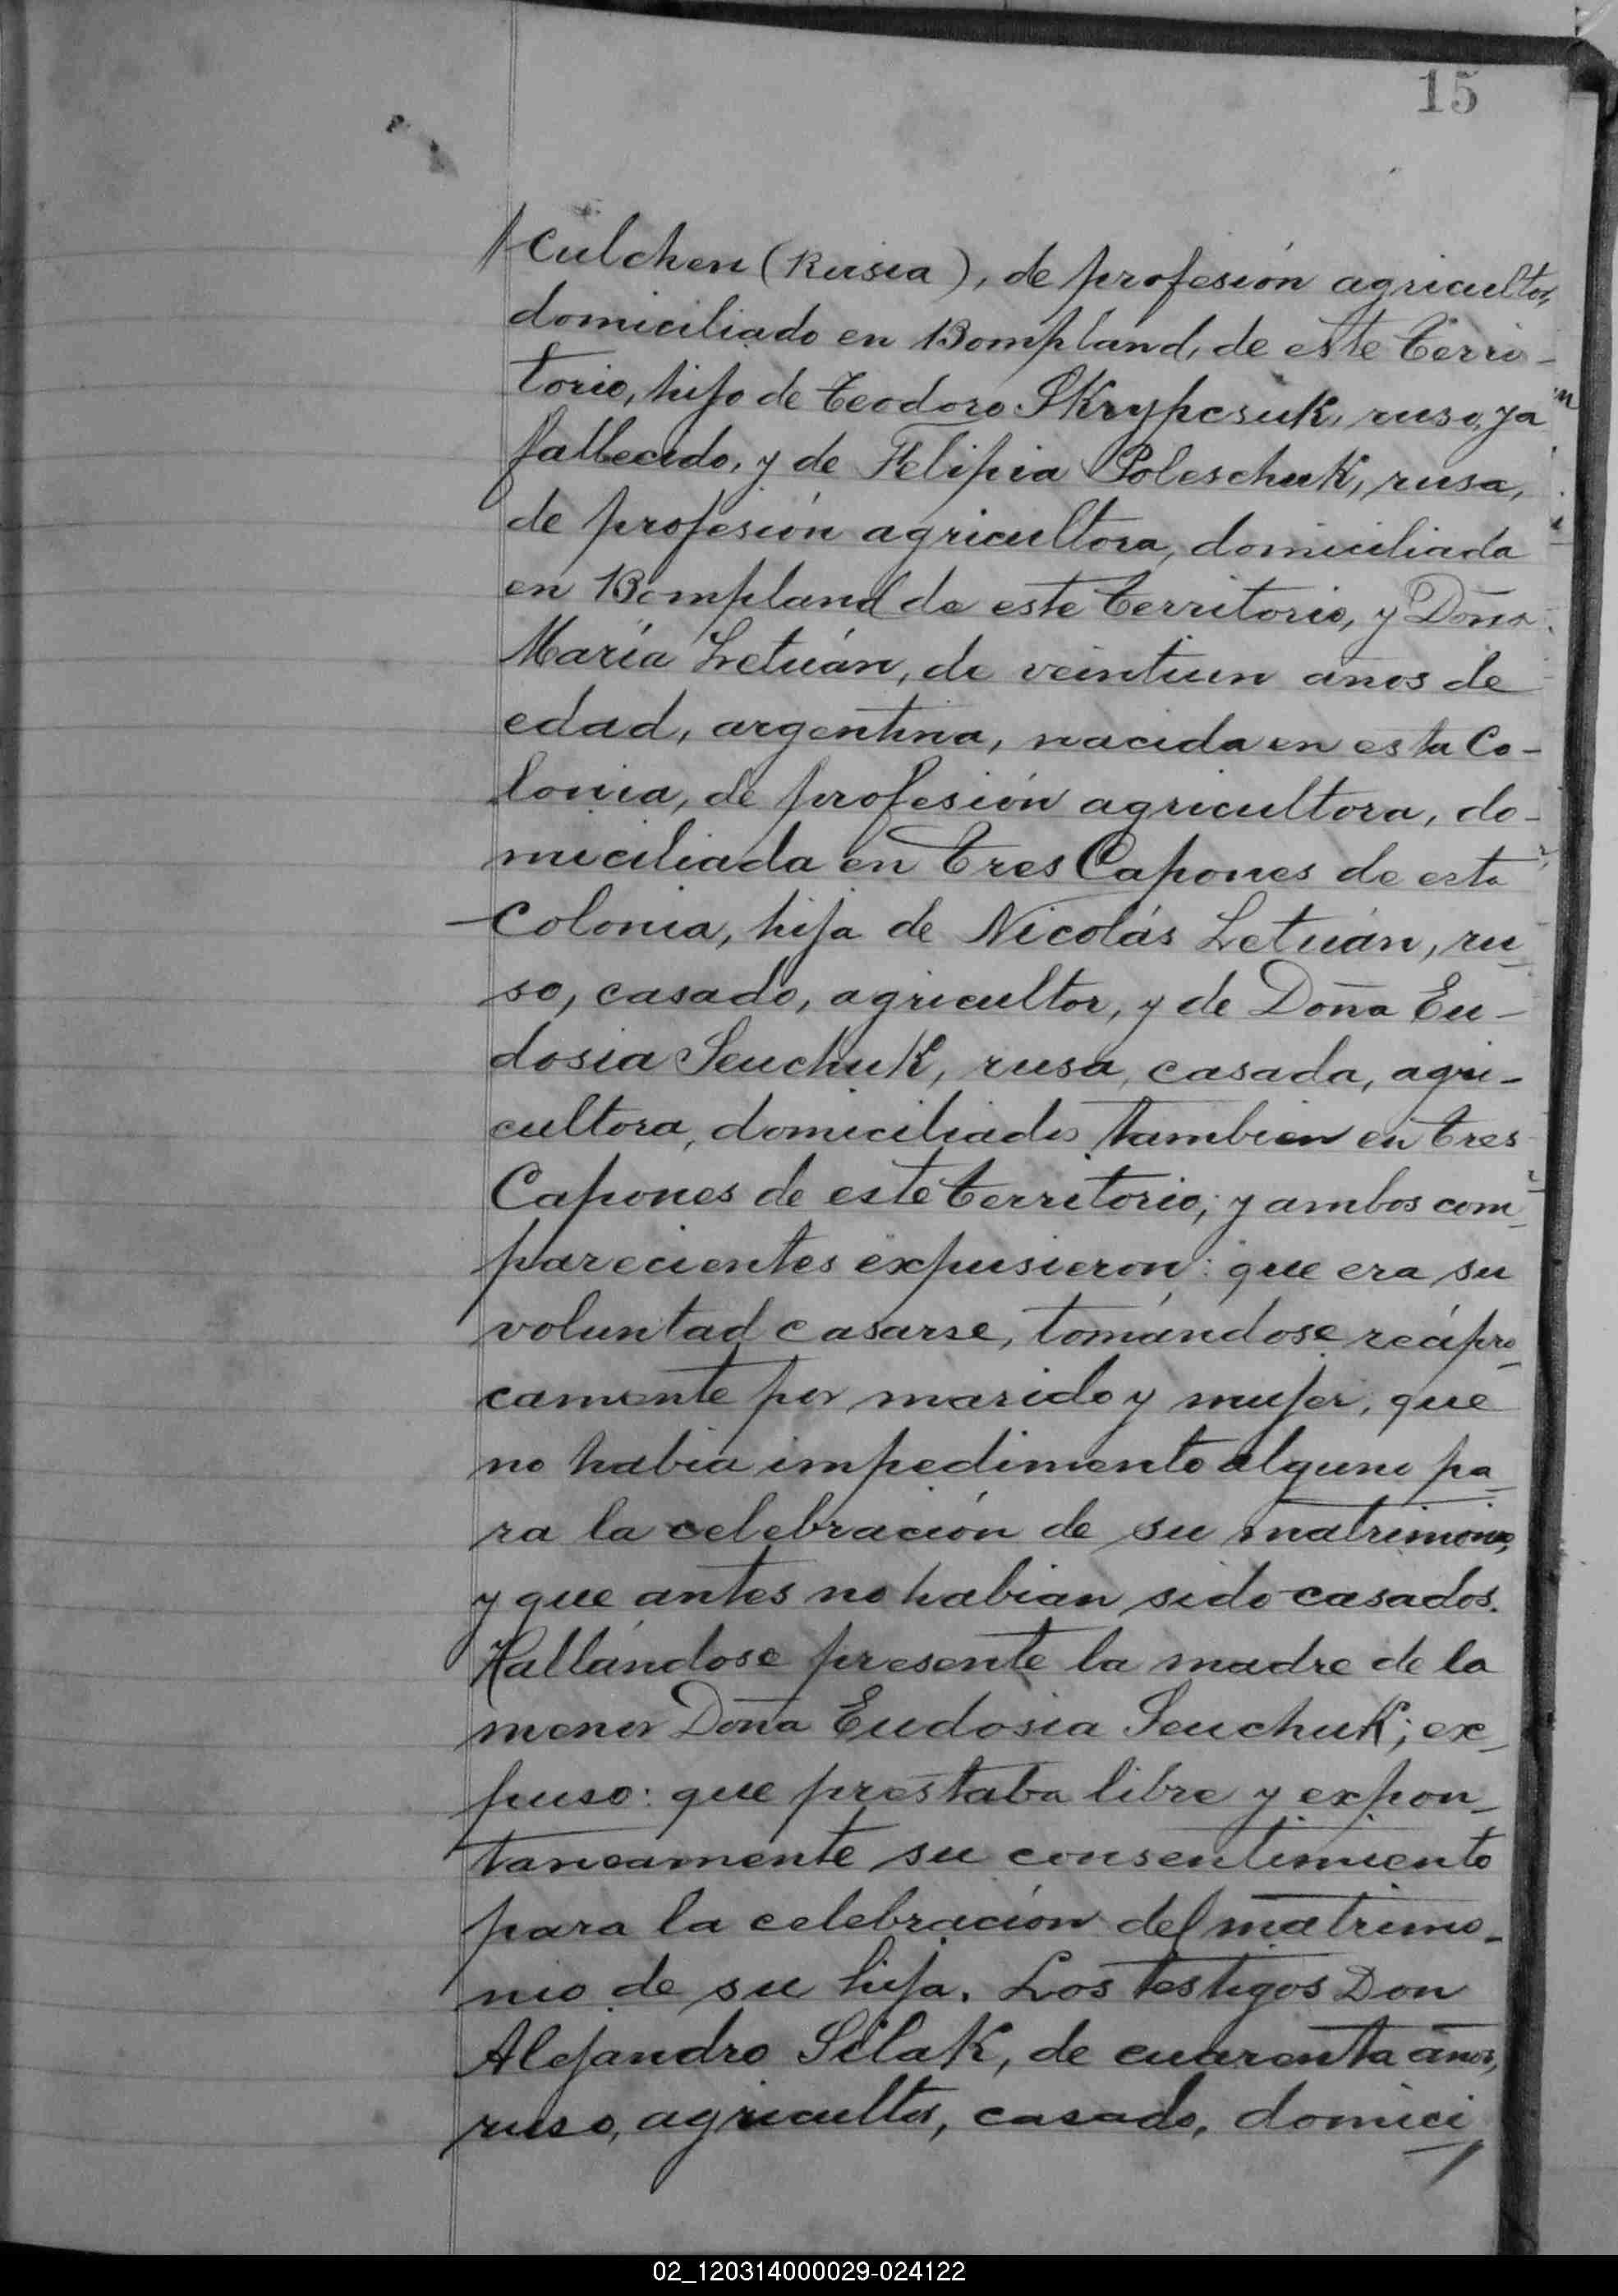 15
// Culchen (Rusia), de profesión agricultor,
domiciliado en Bompland, de este Terri-
torio, hijo de Teodoro Skrypcsuk, ruso, ya
fallecido, y de Felipia Poleschuk, rusa,
de profesión agricultora, domiciliada
en Bompland de este Territorio, y Doña
María Letuán, de veintiun años de
edad, argentina, nacida en esta Co-
lonia, de profesión agricultora, do-
miciliada en Tres Capones de esta
Colonia, hija de Nicolás Letuán, ru-
so, casado, agricultor, y de Doña Eu-
dosia Seuchuk, rusa, casada, agri-
cultora, domiciliados tambien en Tres
Capones de este Territorio; y ambos com-
parecientes expusieron: que era su
voluntad casarse, tomándose recípro-
camente por marido y mujer, que
no habia impedimento alguno pa-
ra la celebración de su matrimonio,
y que antes no habian sido casados.
Hallándose presente la madre de la
menor Doña Eudosia Seuchuk; ex-
puso: que prestaba libre y expon-
taneamente su consentimiento
para la celebración del matrimo-
nio de su hija. Los testigos Don
Alejandro Silak, de cuarenta años,
ruso, agricultor, casado, domici
02_120314000029-024122